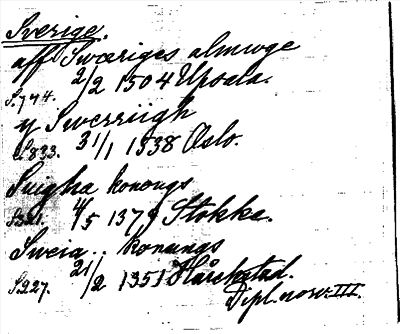 Sverige.
aff Swæriges almwge
S.744. 2/2 1504 Upsala.
y Swerriigh
S.833. 31/1 1538 Oslo.
Suigha konongs
S321. 4/5 1379 Stokke.
Sweia.. konungs
S.227. 21/2 1351 Hårekstad.
Dipl. norv. III.